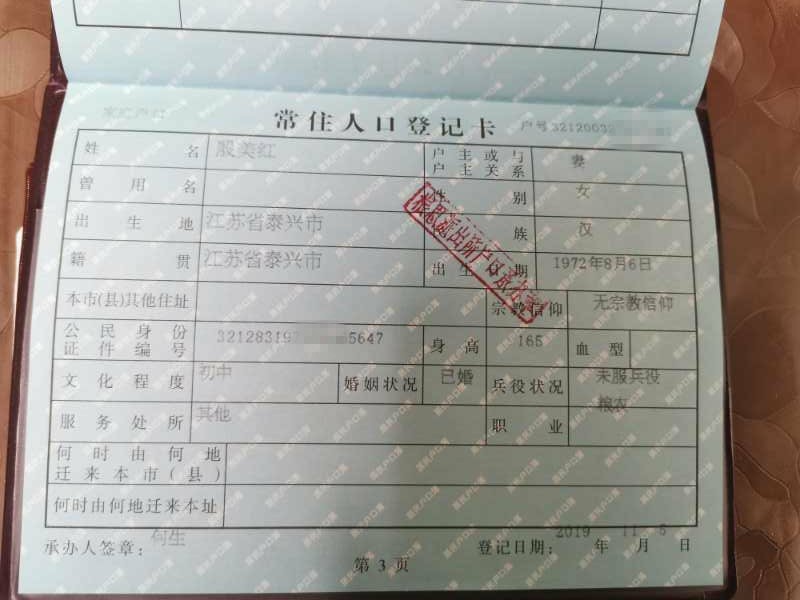 常住人口登记卡
户号 3212003
姓名 殷美红 户主或与户主关系 妻
曾用名 性别 女
出生地 江苏省泰兴市 民族 汉
籍贯 江苏省泰兴市 出生日期 1972年8月6日
本市(县)其他住址 宗教信仰 无宗教信仰
公民身份证件编号 32128319 5647 身高 165 血型
文化程度 初中 婚姻状况 已婚 兵役状况 未服兵役
服务处所 其他 职业 粮农
何时由何地迁来本市(县)
何时由何地迁来本址
承办人签章: 何生 登记日期: 2019 年 11 月 6 日
第 3 页